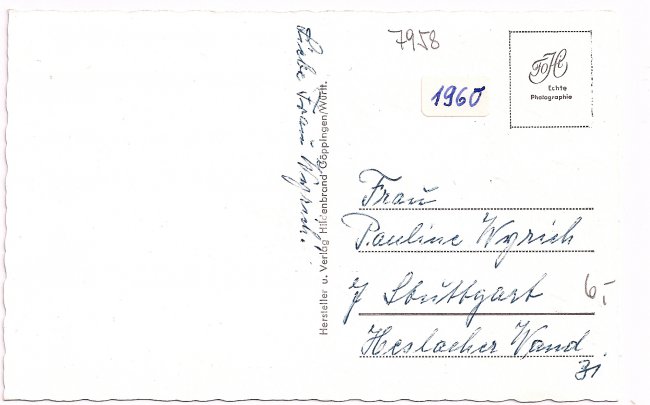 7958
1960
FoHi
Echte
Photographie
Liebe Frau Wyrich,
Hersteller u. Verlag Hildenbrand Göppingen/Württ.
Frau
Pauline Wyrich
Stuttgart
6,-
Heslacher Wand
31